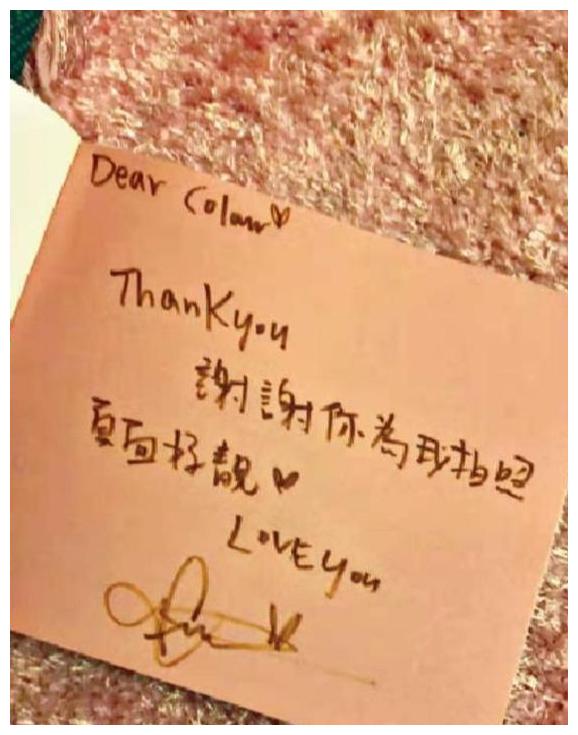 Dear Colour♡
Thankyou
謝謝你為我拍照
頁面好靚♥
LOVE you